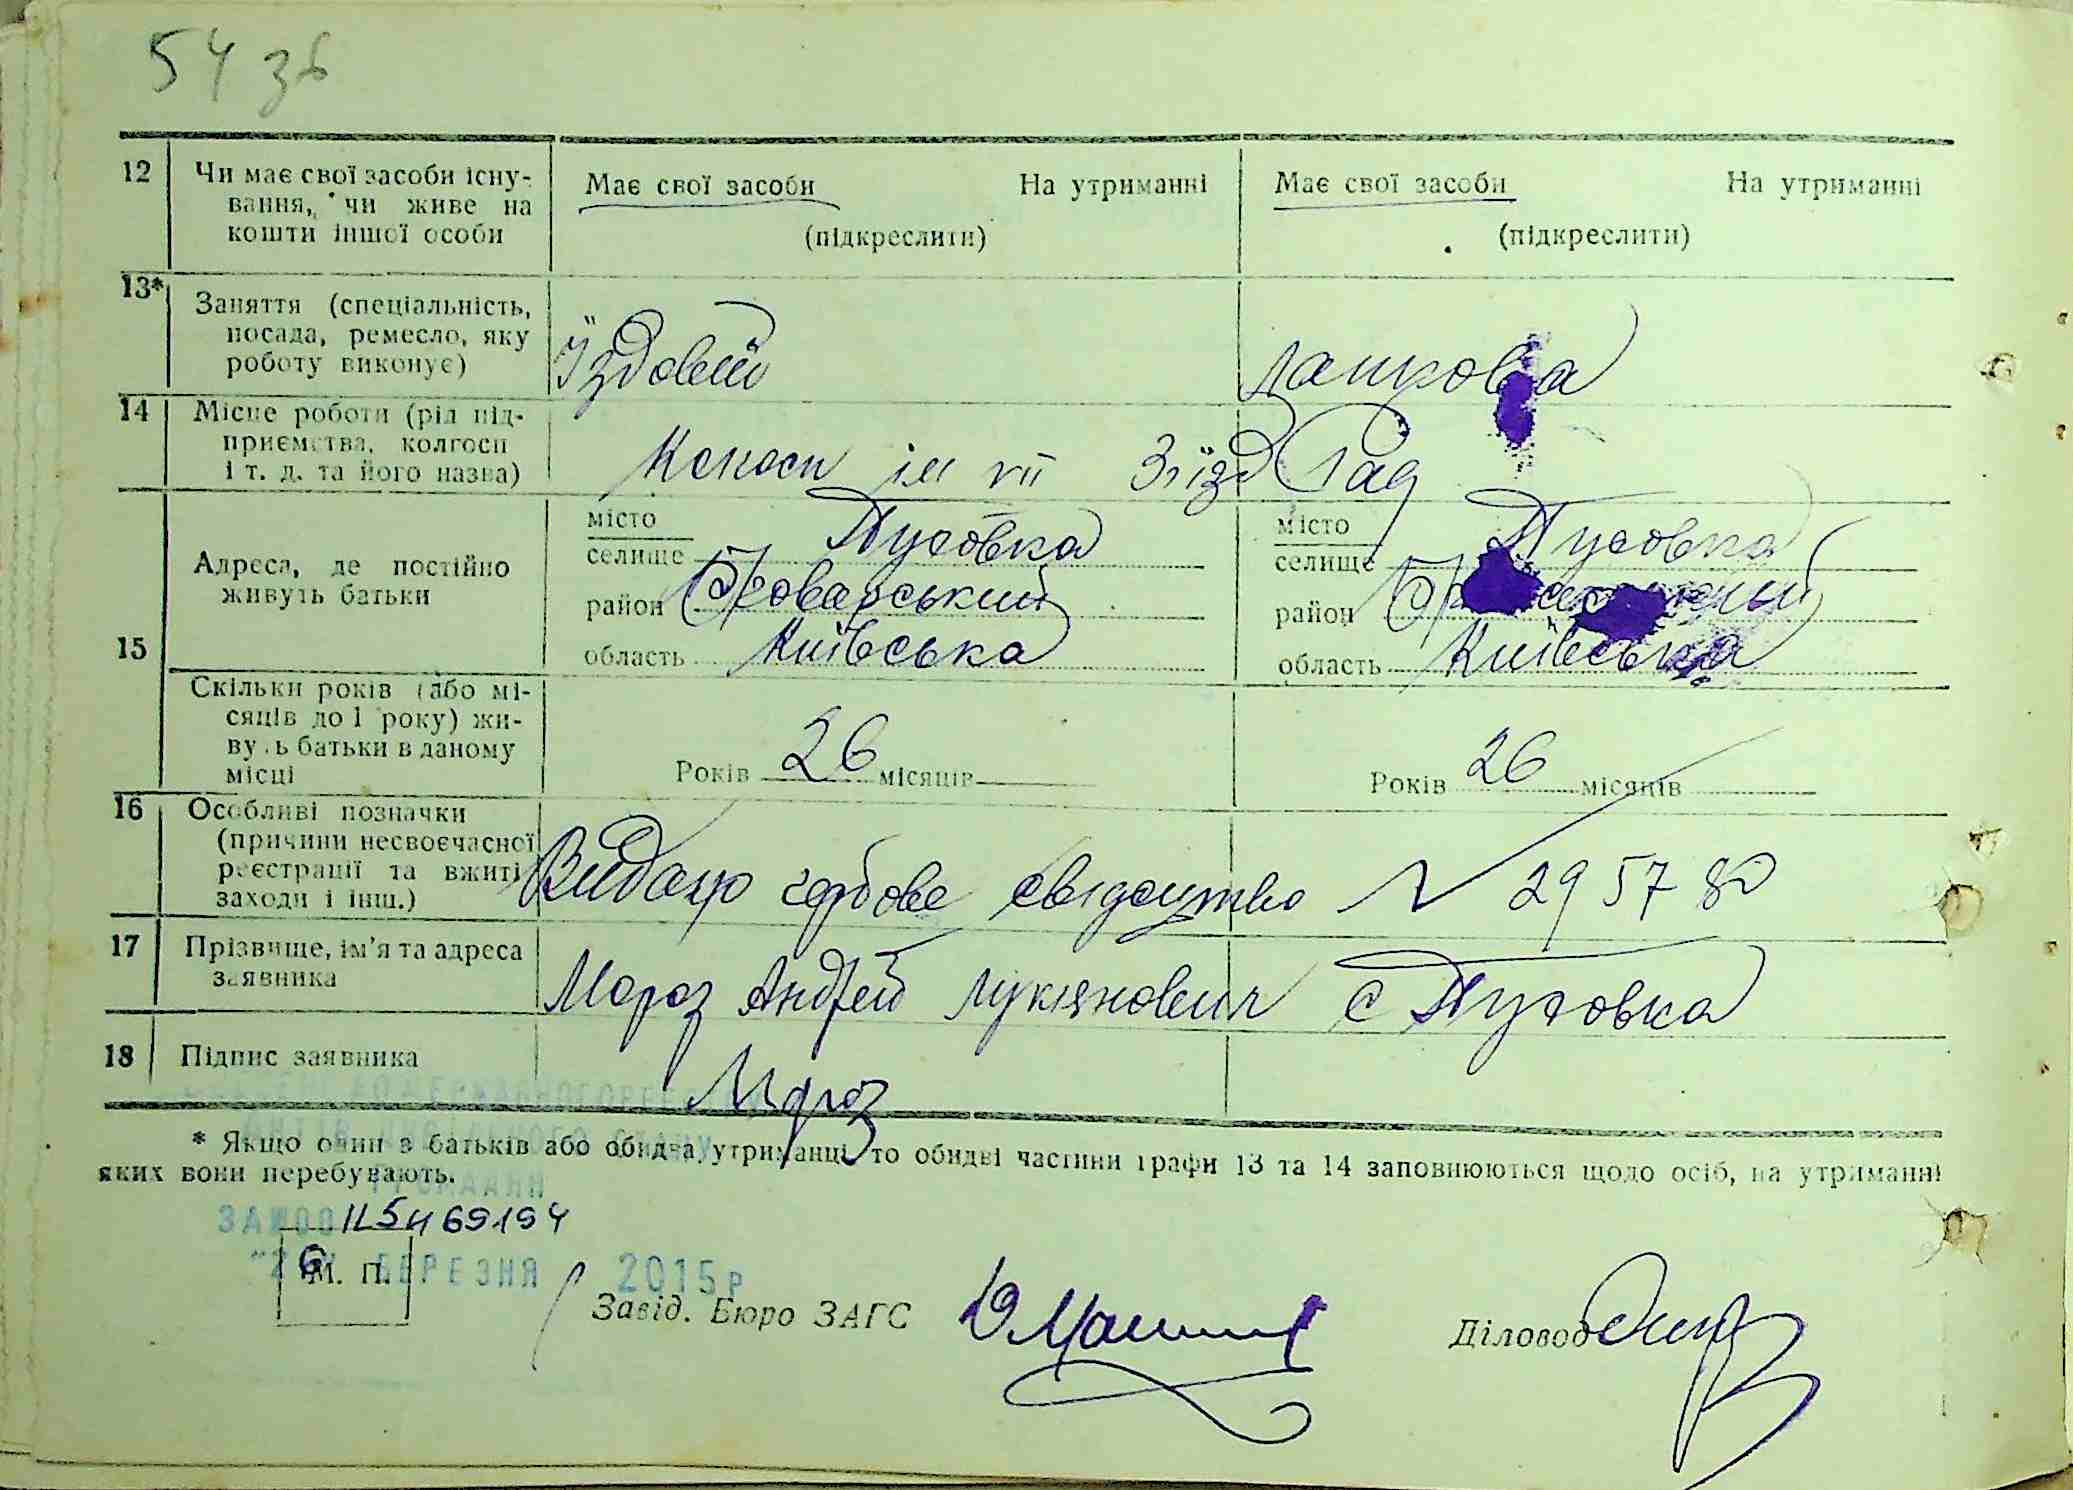 54 зб
12 Чи має свої засоби існу-
вання, чи живе на
кошти іншої особи
Має свої засоби На утриманні
(підкреслити)
Має свої засоби На утриманні
(підкреслити)
13* Заняття (спеціальність,
посада, ремесло, яку
роботу виконує)
Їздовий
ланкова
14 Місце роботи (рід під-
приємства, колгосп
і т. д. та його назва)
Колгосп ім VII Зїїзд Рад
15 Адреса, де постійно
живуть батьки
місто
селище Пухівка
район Броварський
область Київська
місто
селище Пухівка
район
область Київська
Скільки років (або мі-
сяців до 1 року) жи-
вуть батьки в даному
місці
Років 26 місяців
Років 26 місяців
16 Особливі позначки
(причини несвоєчасної
реєстрації та вжиті
заходи і інш.)
Видано гербове свідоцтво N 295780
17 Прізвище, ім'я та адреса
заявника
Мороз Андрей Лукянович с Пуховка
18 Підпис заявника
Мороз
* Якщо один з батьків або обидва утриманці то обидві частини графи 13 та 14 заповнюються щодо осіб, на утриманні
яких вони перебувають.
ГРОМАДЯН
М. П.
БЕРЕЗНЯ 2015р
Завід. Бюро ЗАГС
Діловод